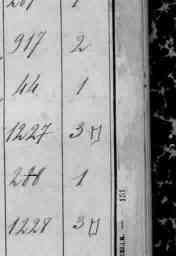 917 2
44 1
1227 3
1
1228 3
151